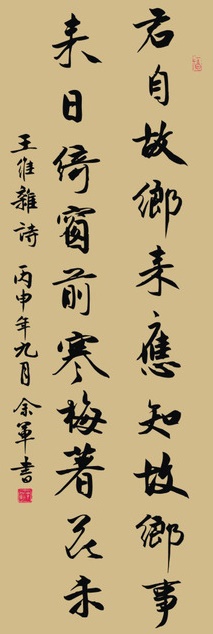 君自故鄉来應知故鄉事
来日綺窗前寒梅著花未
王维雜詩 丙申年九月 余軍書